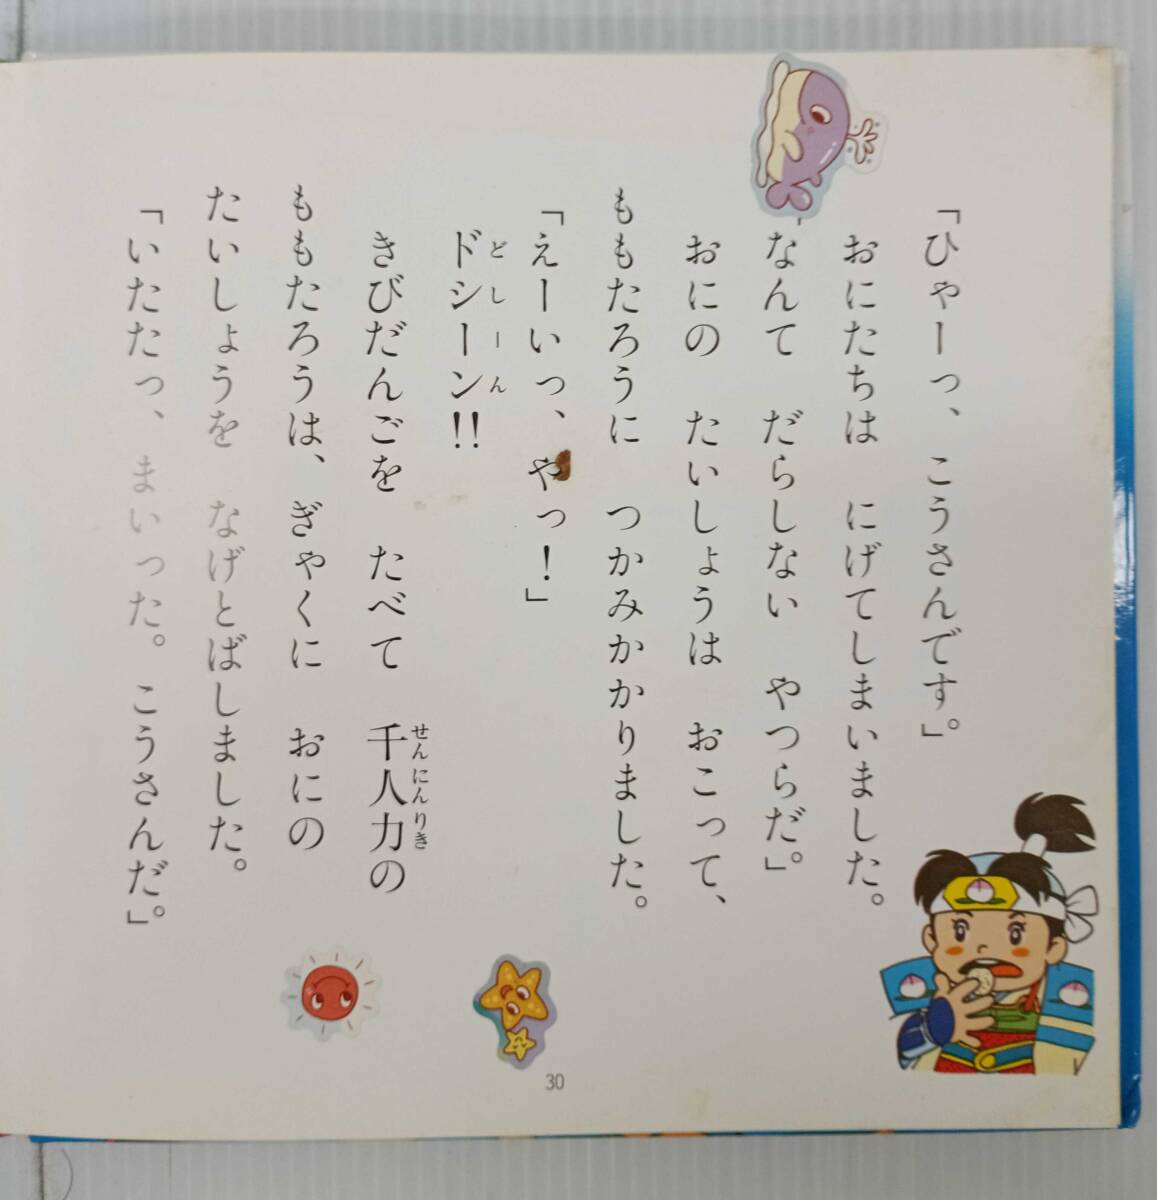 「ひゃーっ、こうさんです」。
おにたちは　にげてしまいました。
「なんて　だらしない　やつらだ。」
おにの　たいしょうは　おこって、
ももたろうに　つかみかかりました。
「えーいっ、やっ！」
ドシーン!!
どしーん
きびだんごを　たべて　千人力の
せんにんりき
ももたろうは、ぎゃくに　おにの
たいしょうを　なげとばしました。
「いたたっ、まいった。こうさんだ」。
30